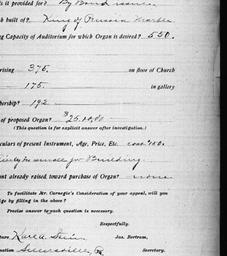 is it provided for? By Bond issue
h built of? King of Prussia Marble
ng Capacity of Auditorium for which Organ is desired? 550.
rising 375. on floor of Church
175. in gallery
bership? 192
of proposed Organ? $2500.00
(This question is for explicit answer after investigation.)
culars of present Instrument, Age, Price, Etc. cost 400.
for Building
nt already raised toward purchase of Organ? none
To facilitate Mr. Carnegie's Consideration of your appeal, will you
ige by filling in the above?
Precise answer to each question is necessary.
Respectfully,
Jas. Bertram,
Secretary.